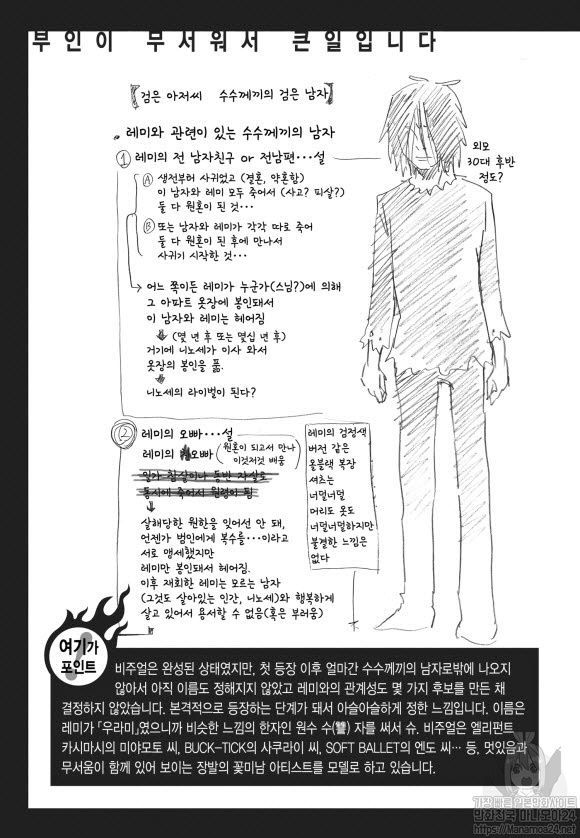 부인이 무서워서 큰일입니다
【검은 아저씨 수수께끼의 검은 남자】
레미와 관련이 있는 수수께끼의 남자
① 레미의 전 남자친구 or 전남편…설
Ⓐ 생전부터 사귀었고 (결혼, 약혼함)
이 남자와 레미 모두 죽어서 (사고? 피살?)
둘 다 원혼이 된 것…
Ⓑ 또는 남자와 레미가 각각 따로 죽어
둘 다 원혼이 된 후에 만나서
사귀기 시작한 것…
어느 쪽이든 레미가 누군가(스님?)에 의해
그 아파트 옷장에 봉인돼서
이 남자와 레미는 헤어짐
(몇 년 후 또는 몇십 년 후)
거기에 니노세가 이사 와서
옷장의 봉인을 품.
니노세의 라이벌이 된다?
외모
30대 후반
정도?
② 레미의 오빠…설
레미의 오빠 (원혼이 되고서 만나
이것저것 배움)
일가 참살이나 동반 자살로
동시에 죽어서 원령이 됨
살해당한 원한을 잊어선 안 돼,
언젠가 범인에게 복수를…이라고
서로 맹세했지만
레미만 봉인돼서 헤어짐.
이후 재회한 레미는 모르는 남자
(그것도 살아있는 인간, 니노세)와 행복하게
살고 있어서 용서할 수 없음(혹은 부러움)
레미의 검정색
버전 같은
올블랙 복장
셔츠는
너덜너덜
머리도 옷도
너덜너덜하지만
불결한 느낌은
없다
여기가
포인트
!
비주얼은 완성된 상태였지만, 첫 등장 이후 얼마간 수수께끼의 남자로밖에 나오지
않아서 아직 이름도 정해지지 않았고 레미와의 관계성도 몇 가지 후보를 만든 채
결정하지 않았습니다. 본격적으로 등장하는 단계가 돼서 아슬아슬하게 정한 느낌입니다. 이름은
레미가 「우라미」였으니까 비슷한 느낌의 한자인 원수 수(讐) 자를 써서 슈. 비주얼은 엘리펀트
카시마시의 미야모토 씨, BUCK-TICK의 사쿠라이 씨, SOFT BALLET의 엔도 씨… 등, 멋있음과
무서움이 함께 있어 보이는 장발의 꽃미남 아티스트를 모델로 하고 있습니다.
가장빠른 일본만화사이트
만화천국 마나모아24
https://Manamoa24.com